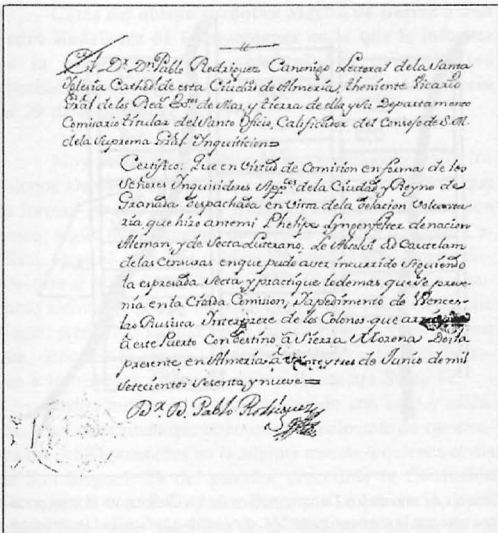 El Dr. Dn. Pablo Rodriguez Canonigo Lectoral de la Santa
Iglesia Cathed. de esta Ciudad de Almeria, theniente Vicario
Gral de los Rs. Extos. de Mar, y tierra de ella y su Departamento
Comisario titular del Santo Oficio, Calificador del Consejo de S. M.
de la Suprema Gral Inquiticion=
Certifico: Que en virtud de Comision en forma de los
Señores Inquisidores Appcos. de la Ciudad, y Reyno de
Granada despachada en virta de la delacion Volunta
ria, que hizo ante mi Phelipe Lyngenfelter de nacion
Aleman, y de Secta Luterano, Le Absolvi ad Cautelam
de las Censuras en que pudo aver incurrido siguiendo
la expresada Secta y practique lo demas que se preve-
nia en la Citada Comision, Y a pedimento de Wences-
lao Rusisca Interprete de los Colonos que
à este Puerto Con destino à Sierra Morena Doi la
presente en Almeria à Veinte y tres de Junio de mil
Setecientos Sesenta, y nueve=
Dr. D. Pablo Rodriguez